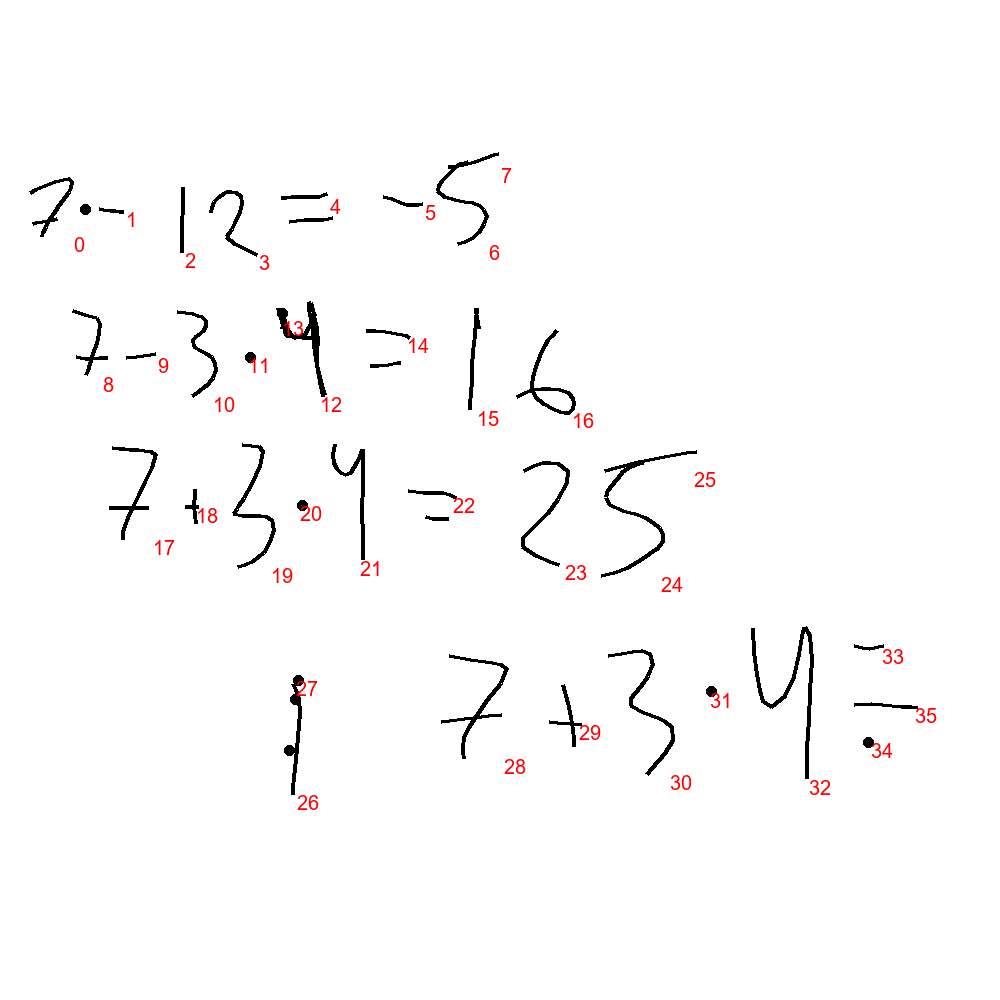 7 · - 12 = -5
0 1 2 3 4 5 6 7
7 - 3 · 4 = 16
8 9 10 11 13 12 14 15 16
7 + 3 · 4 = 25
17 18 19 20 21 22 23 24 25
7 + 3 · 4 =
27 26 28 29 30 31 32 33 35 34